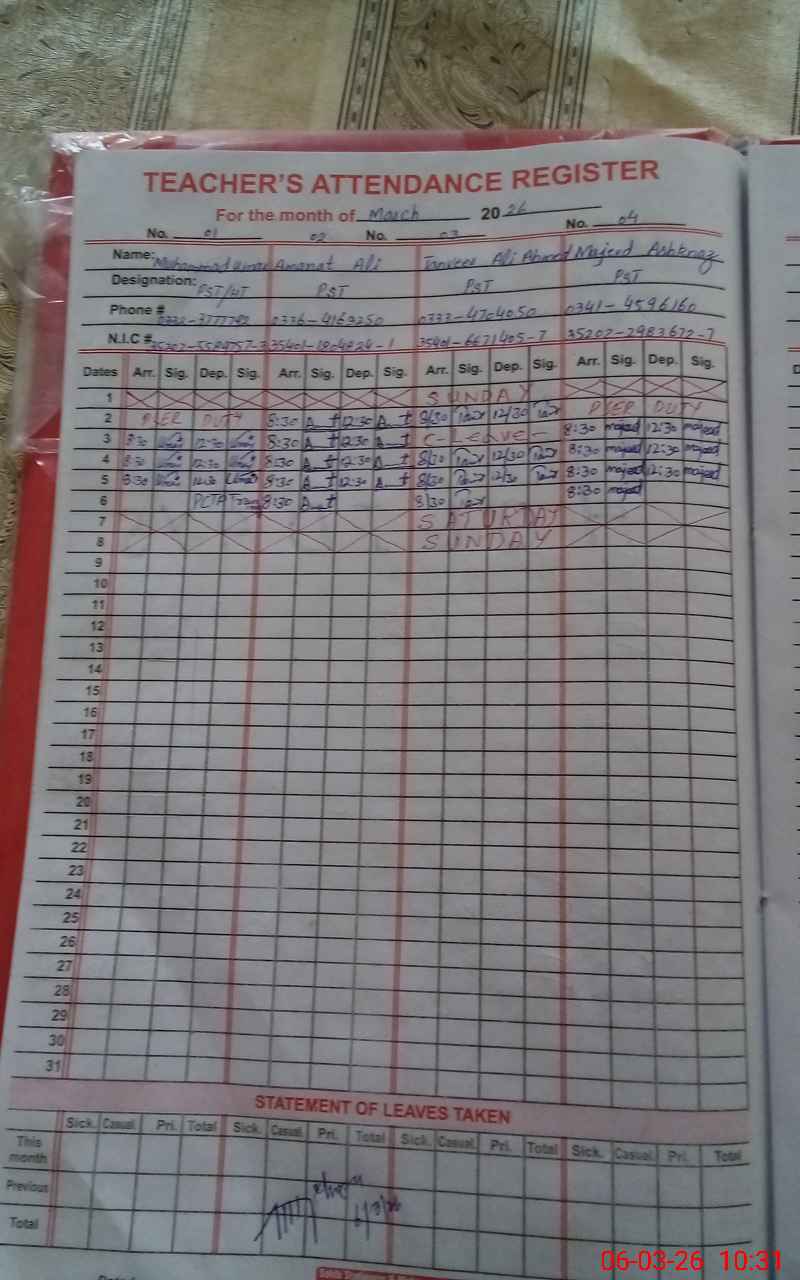 TEACHER'S ATTENDANCE REGISTER
For the month of March 2026
No. 01 02 No. 03 No. 04
Name: Muhammad Umar Amanat Ali Tanveer Ali Ahmed Majeed Ashknaz
Designation: PST/HT PST PST PST
Phone # 0336-4169250 0333-4704050 0341-4596160
N.I.C # 35401-6671405-7 35202-2983672-7
Dates Arr. Sig. Dep. Sig. Arr. Sig. Dep. Sig. Arr. Sig. Dep. Sig. Arr. Sig. Dep. Sig.
1 SUNDAY
2 PSER DUTY 8:30 12:30 8/30 12/30 PSER DUTY
3 8:30 12:30 8:30 12:30 C-LEAVE- 8:30 majeed 12:30 majeed
4 8:30 12:30 8:30 12:30 8/30 12/30 8:30 majeed 12:30 majeed
5 8:30 12:30 8:30 12:30 8/30 12/30 8:30 majeed 12:30 majeed
6 8:30 8/30 8:30 majeed
7 SATURDAY
8 SUNDAY
9
10
11
12
13
14
15
16
17
18
19
20
21
22
23
24
25
26
27
28
29
30
31
STATEMENT OF LEAVES TAKEN
Sick. Casual. Pri. Total Sick. Casual. Pri. Total Sick. Casual. Pri. Total Sick. Casual. Pri. Total
This month
Previous
Total
6/3/26
06-03-26 10:31